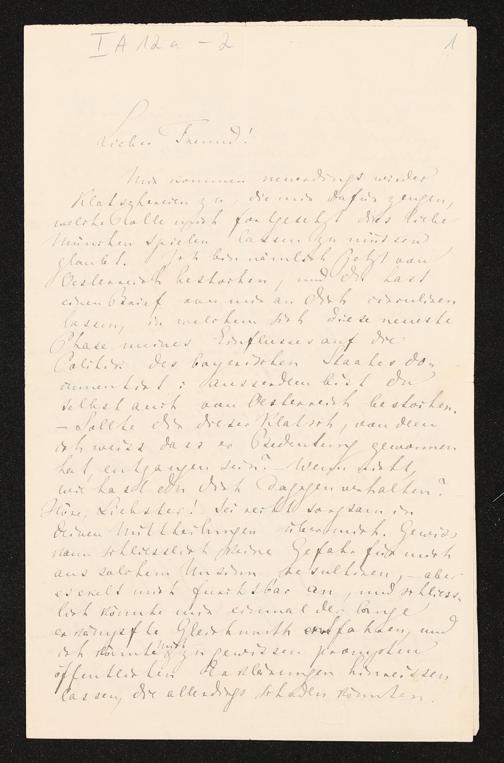 I A 12 a - 2
1
Lieber Freund!
Mir kommen neuerdings wieder
Klatschereien zu, die mir dafür zeugen,
welche Rolle mich fortgesetzt das liebe
München spielen lassen zu müssen
glaubt. Ich bin nämlich jetzt von
Oesterreich bestochen, und du hast
einen Brief von mir an dich circuliren
lassen, in welchem sich diese neueste
Phase meines Einflusses auf die
Politik des bayerischen Staates do=
cumentirt: ausserdem bist du
selbst auch von Oesterreich bestochen.
– Sollte dir dieser Klatsch, von dem
ich weiss dass er Bedeutung gewonnen
hat, entgangen sein? – Wenn nicht,
wie hast du dich dagegen verhalten?
Höre, Liebster! Sei recht sorgsam in
deinen Mittheilungen über mich. Gewiss
kann schliesslich keine Gefahr für mich
aus solchem Unsinn resultiren, – aber
es ekelt mich furchtbar an, und schliess=
lich könnte mir einmal der lange
erkämpfte Gleichmuth entfahren, und
ich könnte mich zu gewissen prompten
öffentlichen Erklärungen hinreissen
lassen, die allerdings schaden könnten.